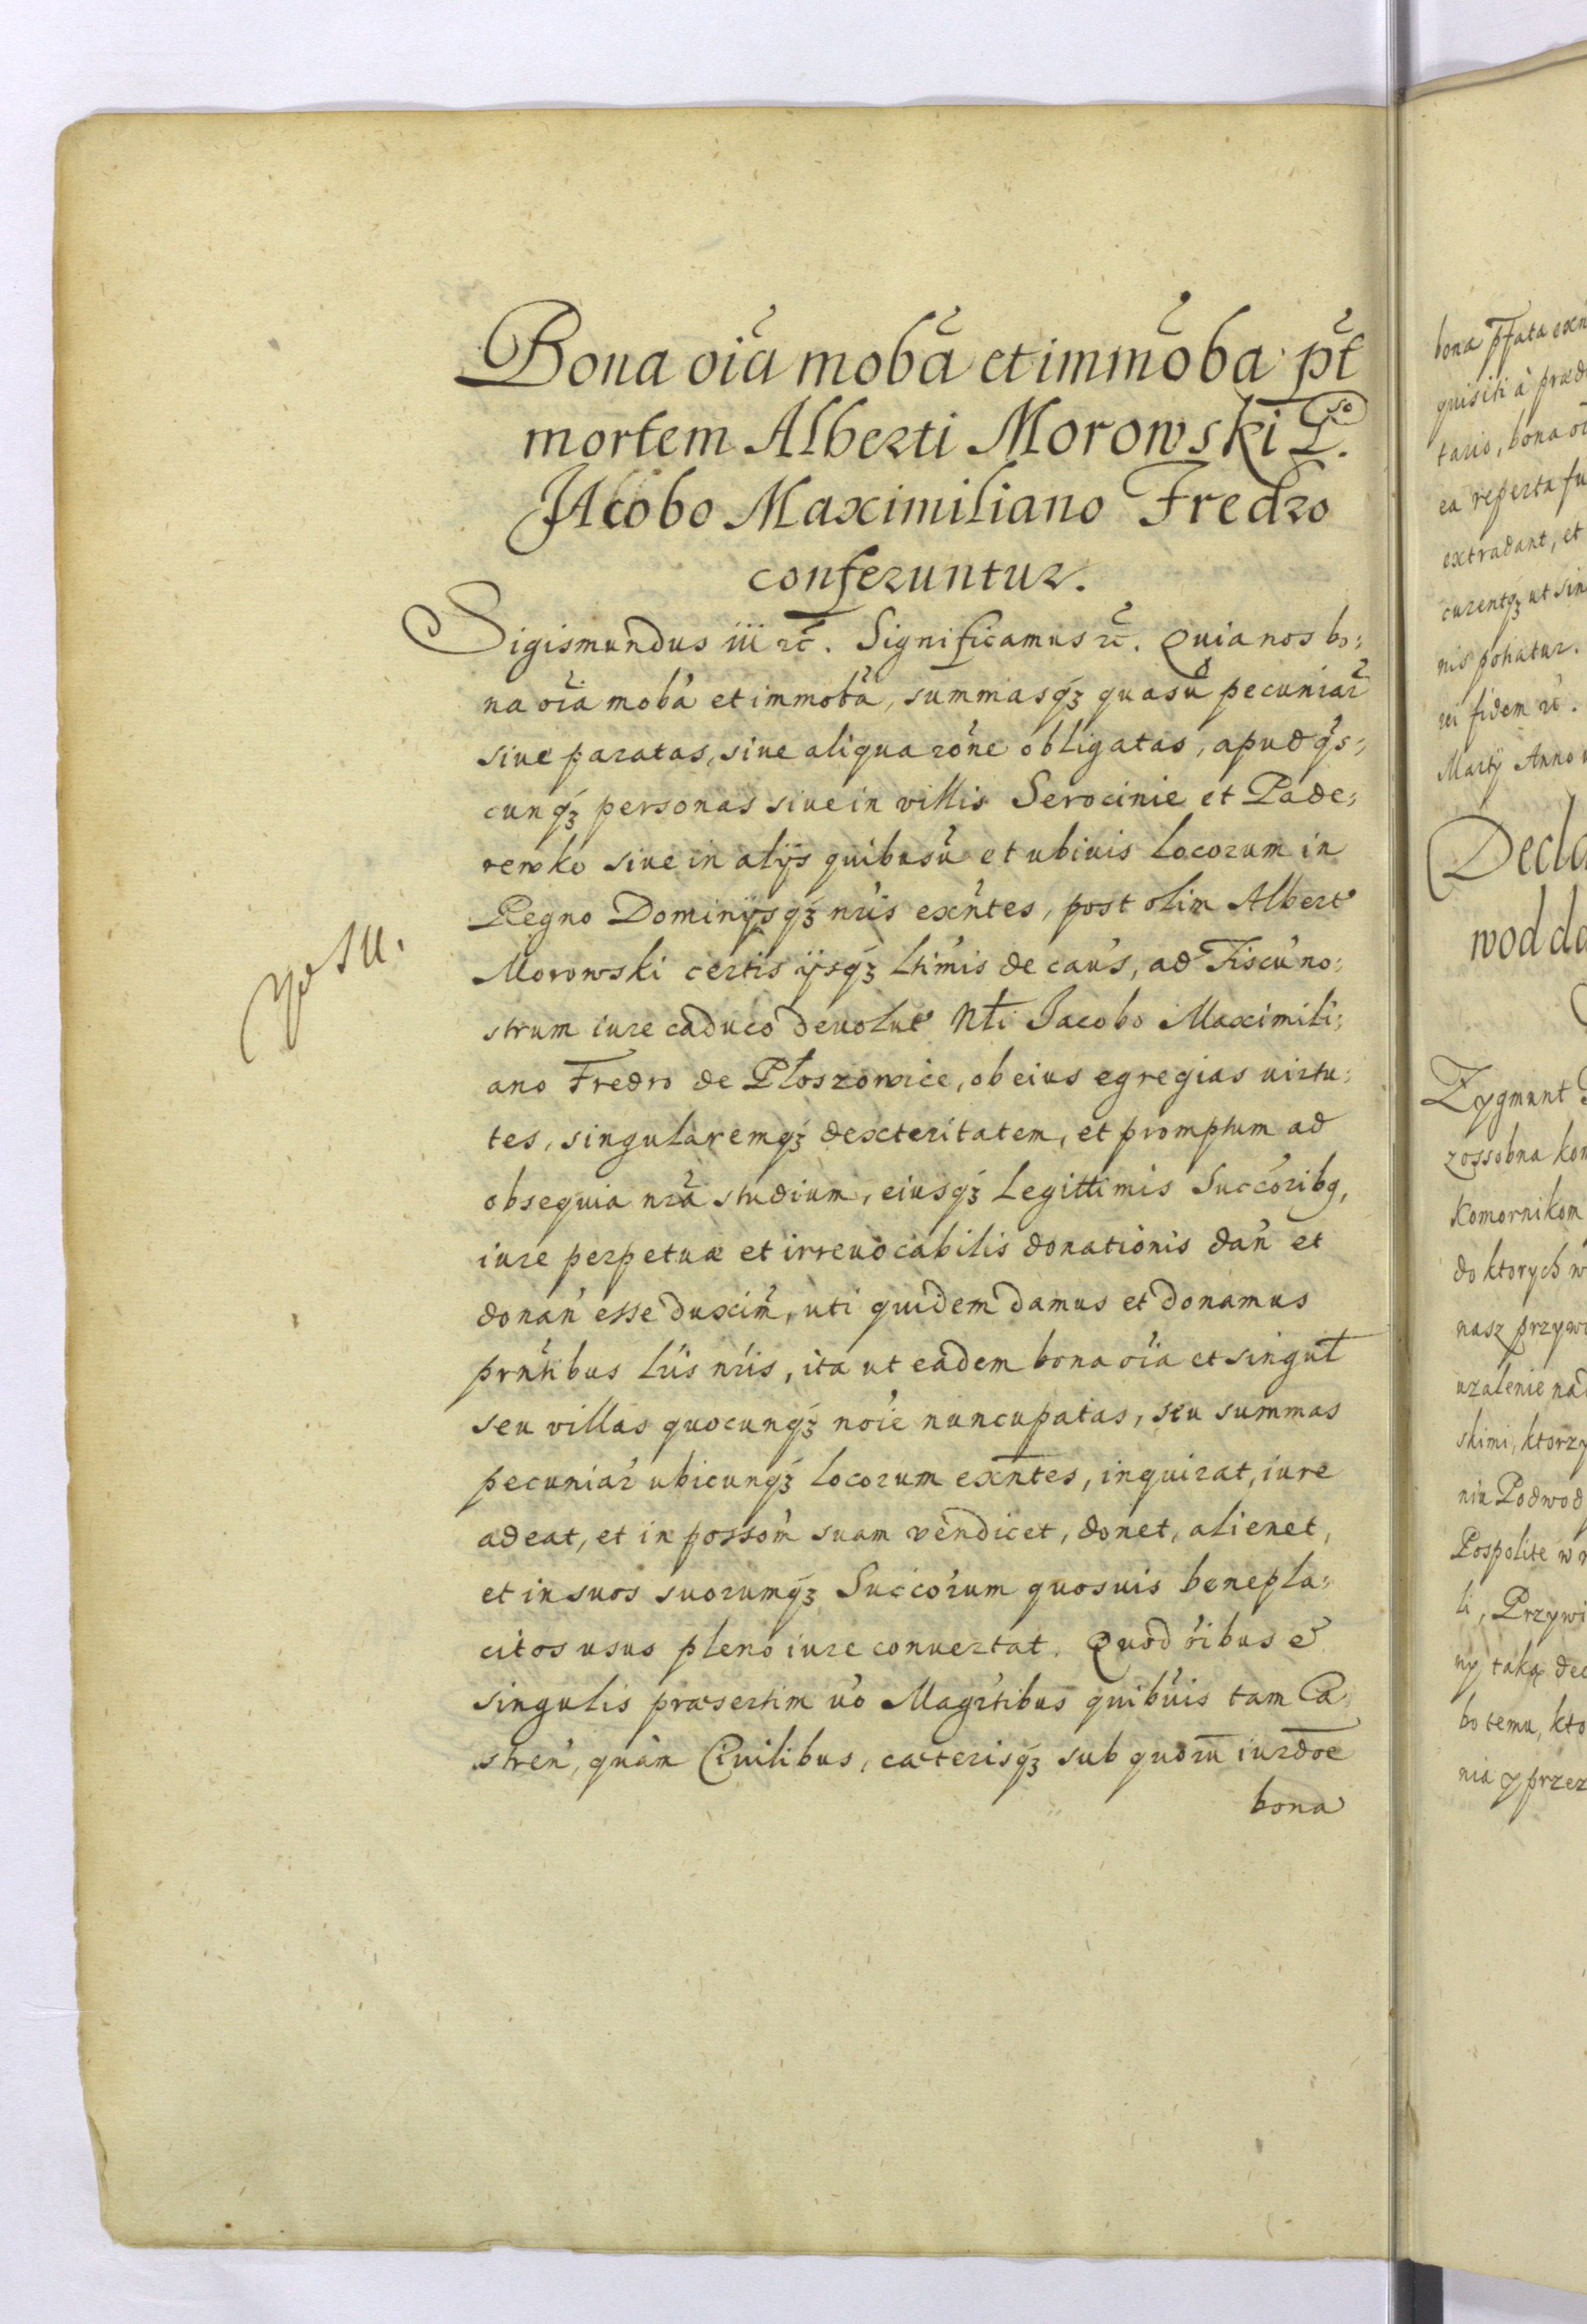 Bona oĩa mobã et immõba pt̃
mortem Alberti Morowski G.so
Jacobo Maximiliano Fredro
conferuntur.
Sigismundus iii rc̃. Significamus rc̃. Quia nos bo:
na oĩa mobã et immobã, summasqȝ quasũ pecuniar̃
siue paratas, siue aliqua rõne obligatas, apud qũs:
cunqȝ personas siue in villis Serocinie et Pade:
rewko siue in alijs quibusũ et ubiuis locorum in
Regno Dominijsqȝ nr̃is exñtes, post olim Albert
Morowski certis ijsqȝ ltĩmis de caũs, ad Fiscũ no:
strum iure caduco deuolut Nłi Jacobo Maximili:
ano Fredro de Płoszowice, ob eius egregias uirtu:
tes, singularemqȝ dexteritatem, et promptum ad
obsequia nrã studium, eiusqȝ legittimis Succõribq,
iure perpetuæ et irreuocabilis donationis dañ et
donañ esse duxim̃, uti quidem damus et donamus
prñtibus lr̃is nr̃is, ita ut eadem bona oĩa et singuł
seu villas quocunqȝ noĩe nuncupatas, seu summas
pecuniar̃ ubicunqȝ locorum exñtes, inquirat, iure
adeat, et in possom̃ suam vendicet, donet, alienet,
et in suos suorumqȝ Succõrum quosuis benepla:
citos usus pleno iure conuertat. Quod õibus et
singulis præsertim ũo Magr̃tibus quibũis tam Ca
streñ, quàm Ciuilibus, cæterisqȝ sub quorũ iurdõe
bona
bona p̃fata exñ
quisiti à præd
tario, bona oĩ
ea reperta fu
extradant, et
curentqȝ ut sin
nis potiatur.
rei fidem rc̃.
Martij Anno
Decla
wod da
Zygmunt
zossobna kom
Komornikom
do ktorych w
nasz przywi
uzalenie nad
skimi, ktorzy
niu Podwod
Pospolite w
li, Przywi
ny taką dec
bo temu, kto
nia y przez